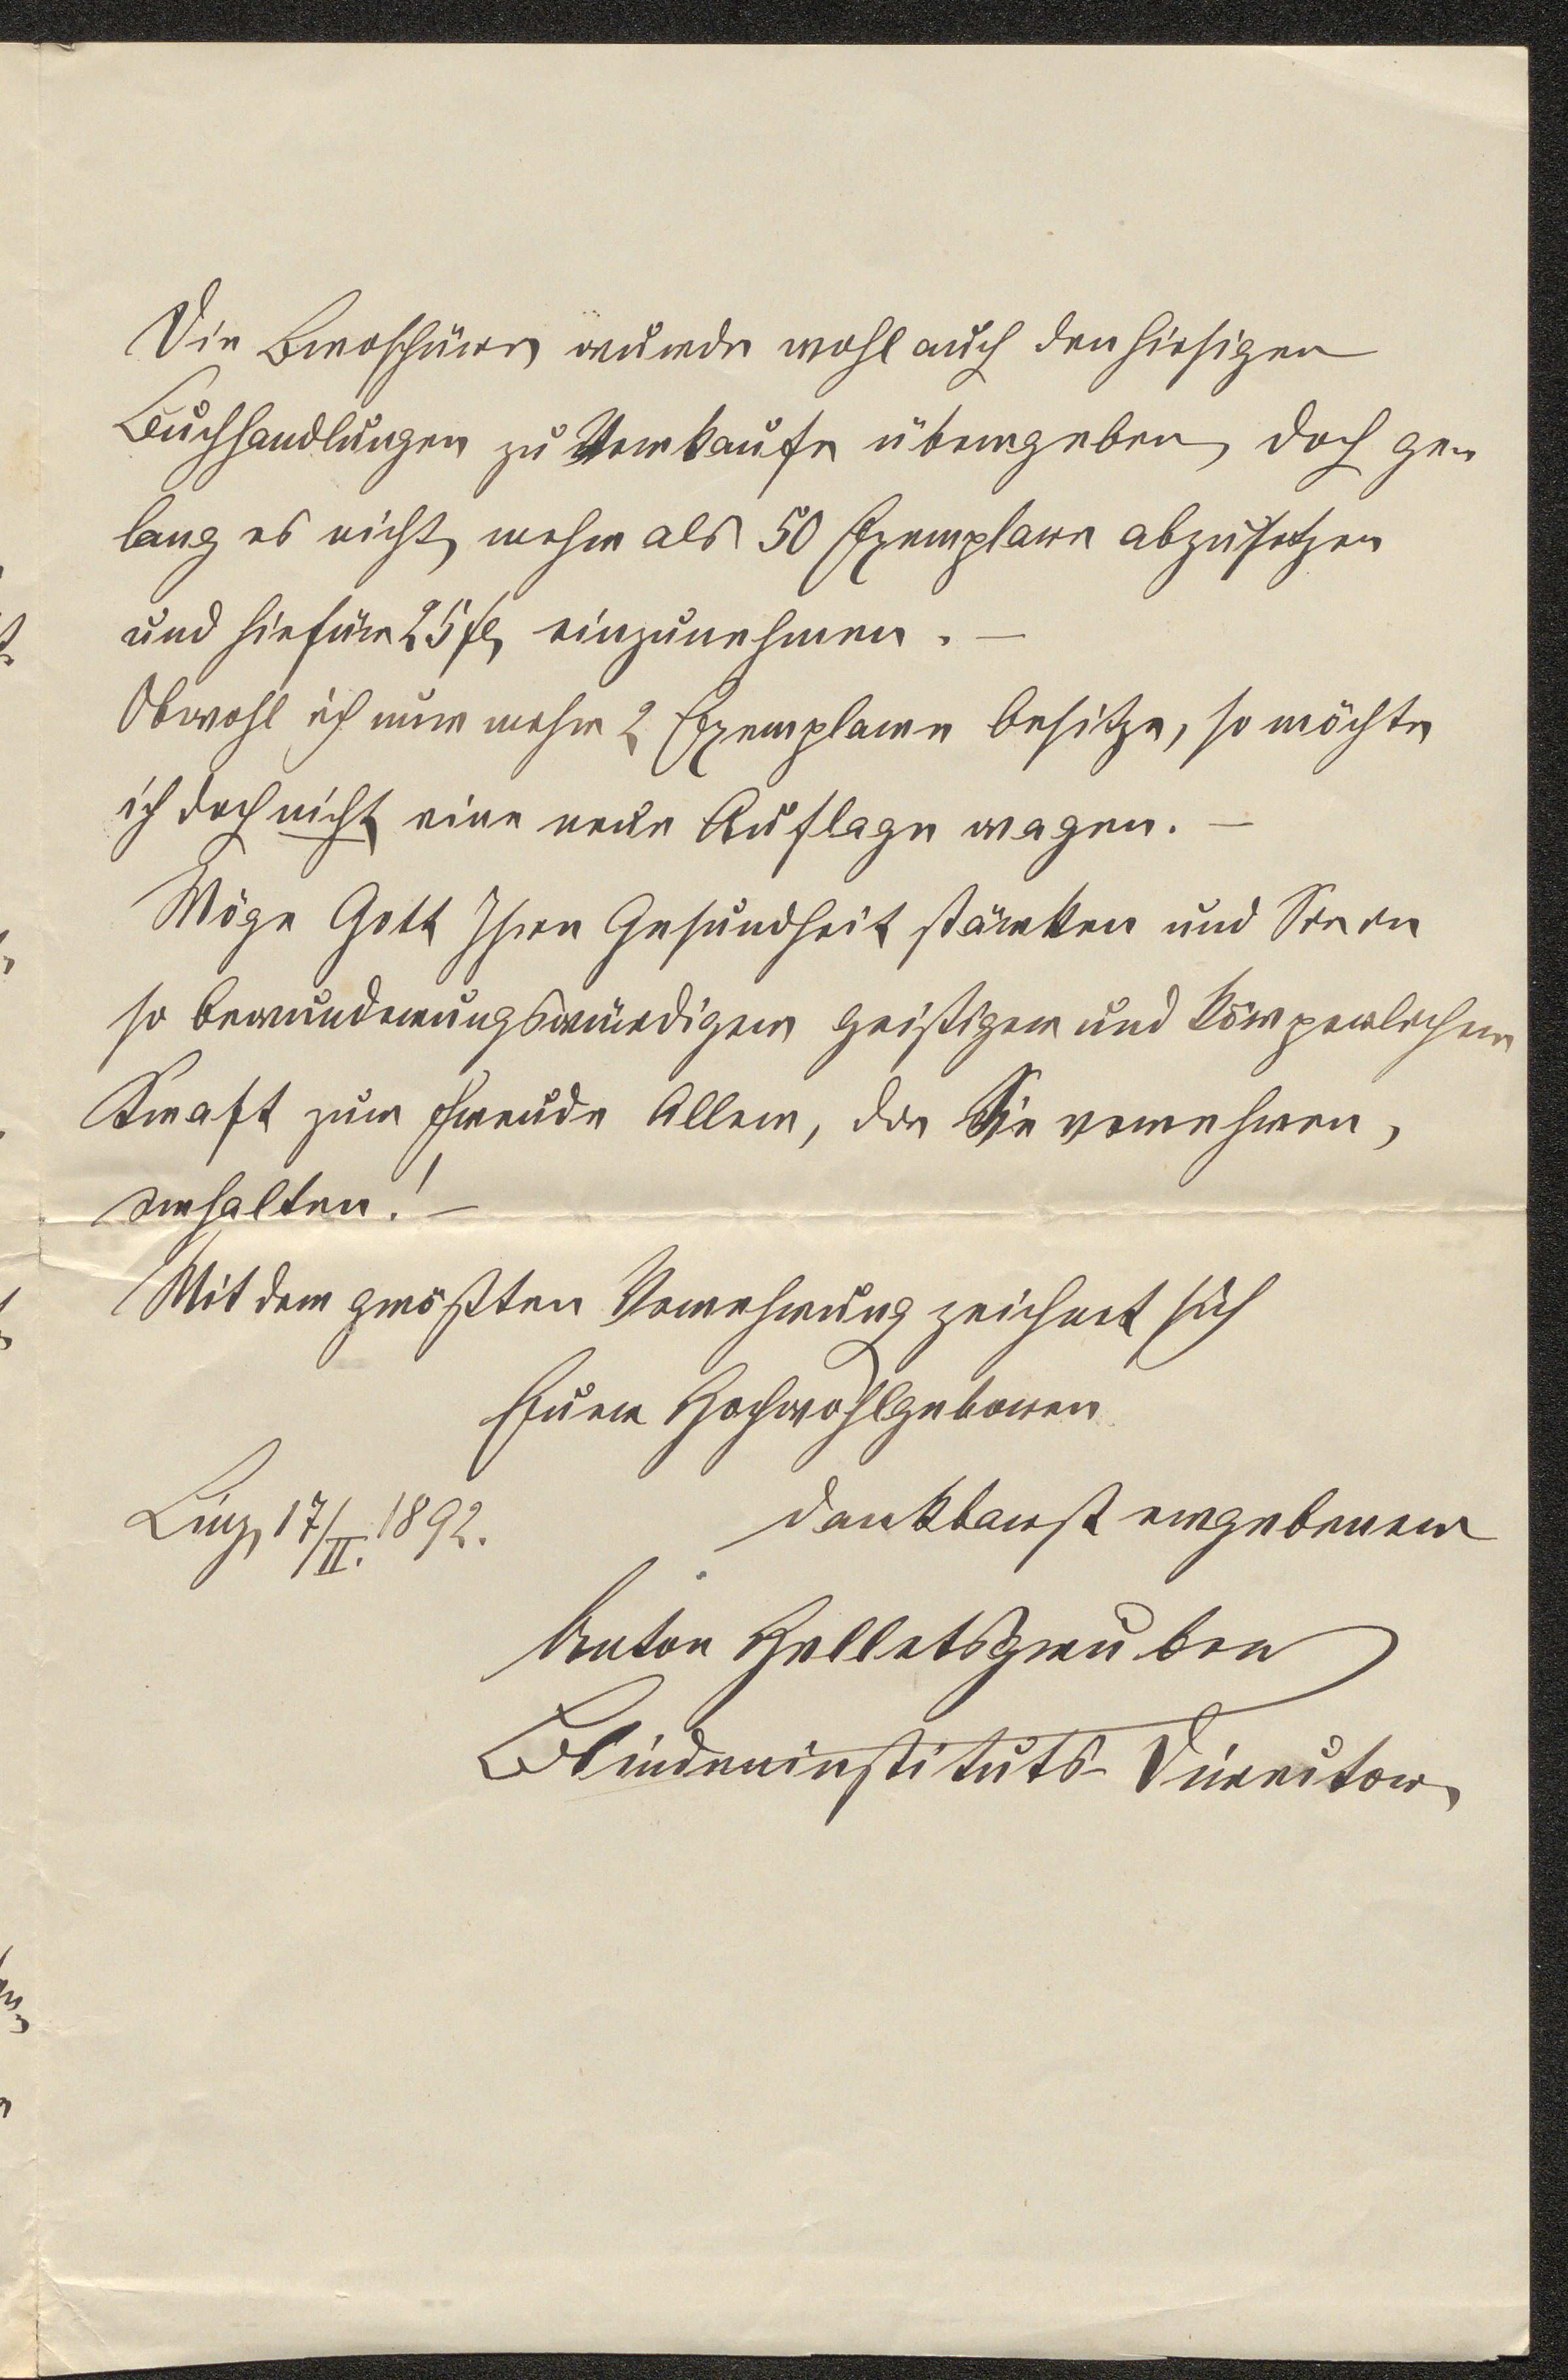 Die Broschüre wurde wohl auch den hiesigen
Buchhandlungen zu Verkaufe übergeben, doch ge-
lang es nicht, mehr als 50 Exemplare abzusetzen
und hiefür 25 fl, einzunehmen. —
Obwohl ich nur mehr 2 Exemplare besitze, so möchte
ich doch nicht eine neue Auflage wagen. —
Möge Gott Ihre Gesundheit stärken und Sie in
so bewunderungswürdiger geistiger und körperlicher
Kraft zur Freude Aller, die Sie verehren,
erhalten! —
Mit der größten Verehrung zeichnet sich
Euer Hochwohlgeboren
dankbarst ergebener
Linz, 17/II. 1892.
Anton Helletsgruber
Blindeninstituts-Director,